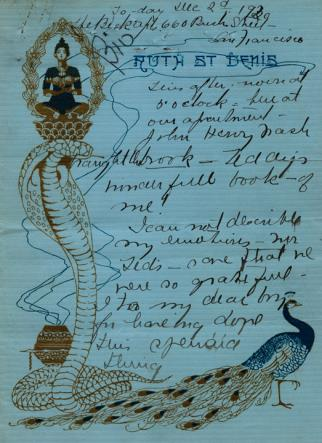 To day Dec 2d 1929
the Berkshire 660 Bush Street
San Francisco
RUTH ST DENIS
This after-noon at
o'clock - here at
our apartment -
John Henry Nash
brought the book - Teddies
wonderfull book - of
me!
I can not describe
my emotions - nor
Teds - save that we
were so grateful -
I to my dear boy
for having done
this splendid
thing